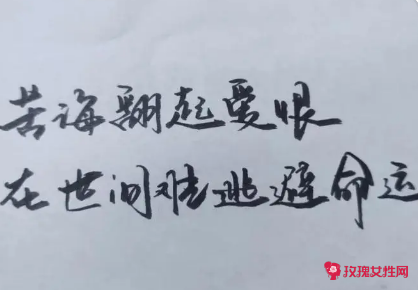 苦海翻起爱恨
在世间难逃避命运
玫瑰女性网